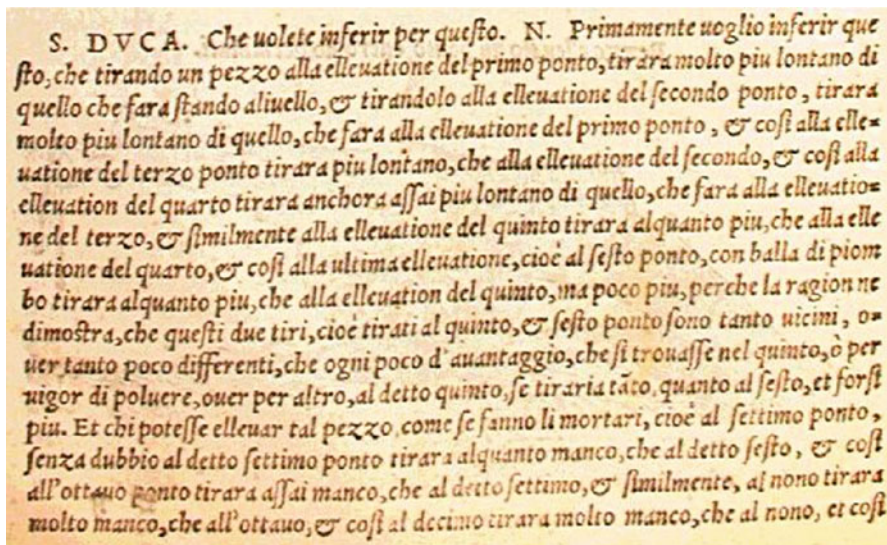 S. DVCA. Che uolete inferir per questo. N. Primamente uoglio inferir que
sto, che tirando un pezzo alla elleuatione del primo ponto, tirara molto piu lontano di
quello che fara stando aliuello, & tirandolo alla elleuatione del secondo ponto, tirara
molto piu lontano di quello, che fara alla elleuatione del primo ponto, & cosi alla elle=
uatione del terzo ponto tirara piu lontano, che alla elleuatione del secondo, & cosi alla
elleuation del quarto tirara anchora assai piu lontano di quello, che fara alla elleuatio=
ne del terzo, & similmente alla elleuatione del quinto tirara alquanto piu, che alla elle
uatione del quarto, & cosi alla ultima elleuatione, cioè al sesto ponto, con balla di piom
bo tirara alquanto piu, che alla elleuation del quinto, ma poco piu, perche la ragion ne
dimostra, che questi due tiri, cioè tirati al quinto, & sesto ponto sono tanto uicini, o=
uer tanto poco differenti, che ogni poco d'auantaggio, che si trouasse nel quinto, ò per
uigor di poluere, ouer per altro, al detto quinto, se tiraria tãto, quanto al sesto, et forsi
piu. Et chi potesse elleuar tal pezzo, come se fanno li mortari, cioè al settimo ponto,
senza dubbio al detto settimo ponto tirara alquanto manco, che al detto sesto, & cosi
all'ottauo ponto tirara assai manco, che al detto settimo, & similmente, al nono tirara
molto manco, che all'ottauo, & cosi al decimo tirara molto manco, che al nono, et cosi